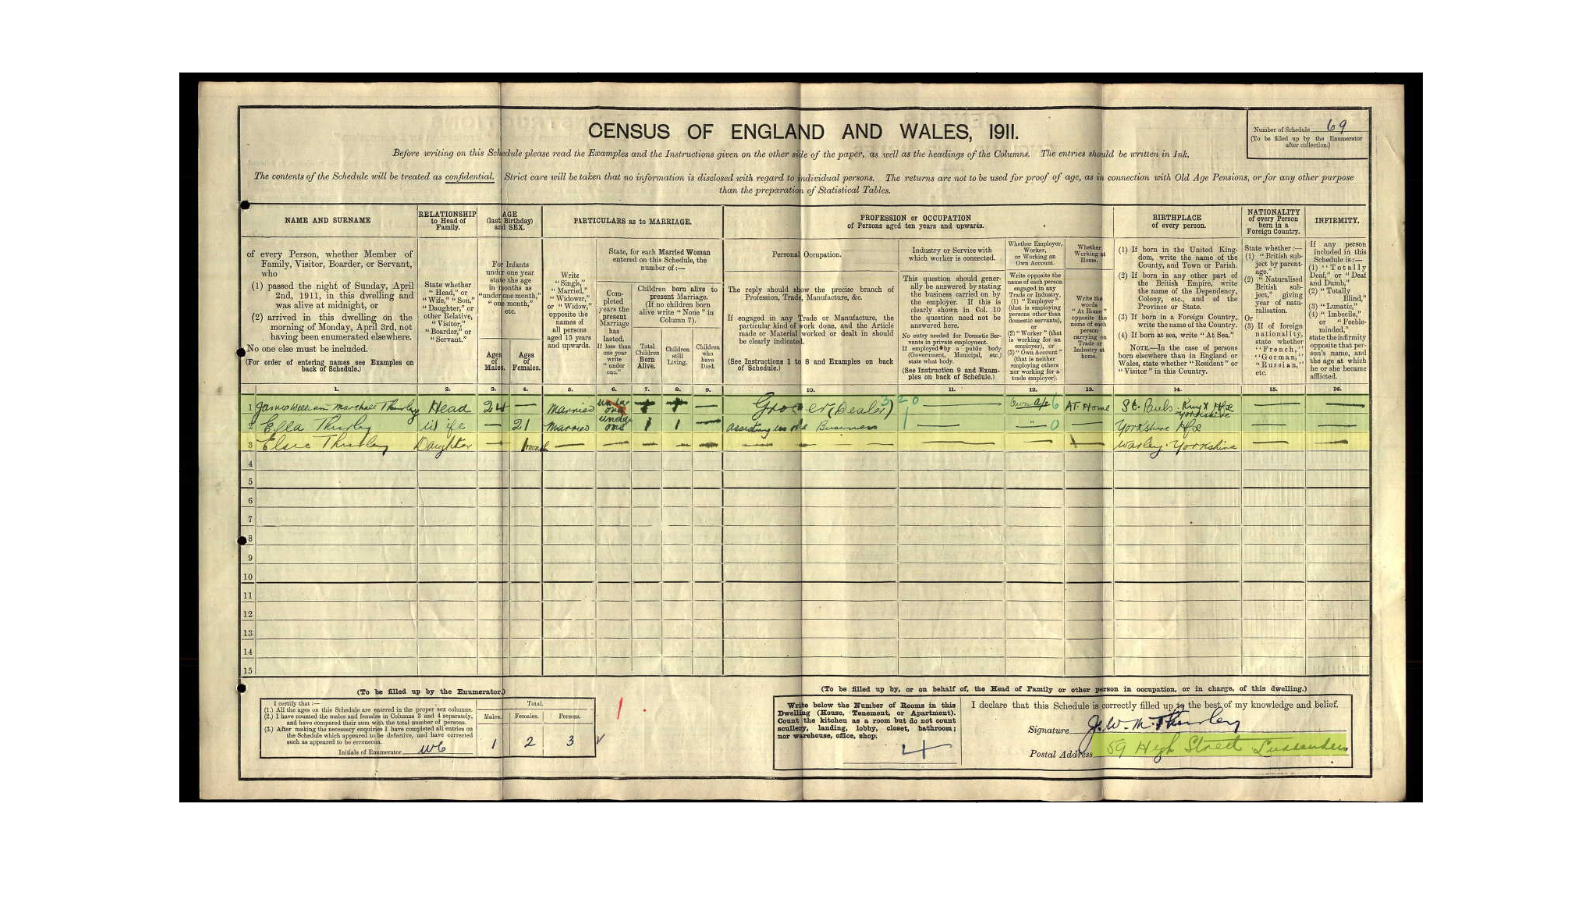 CENSUS OF ENGLAND AND WALES, 1911.
Number of Schedule 69
(To be filled up by the Enumerator
after collection.)
Before writing on this Schedule please read the Examples and the Instructions given on the other side of the paper, as well as the headings of the Columns. The entries should be written in Ink.
The contents of the Schedule will be treated as confidential. Strict care will be taken that no information is disclosed with regard to individual persons. The returns are not to be used for proof of age, as in connection with Old Age Pensions, or for any other purpose
than the preparation of Statistical Tables.
NAME AND SURNAME
of every Person, whether Member of
Family, Visitor, Boarder, or Servant,
who
(1) passed the night of Sunday, April
2nd, 1911, in this dwelling and
was alive at midnight, or
(2) arrived in this dwelling on the
morning of Monday, April 3rd, not
having been enumerated elsewhere.
No one else must be included.
(For order of entering names see Examples on
back of Schedule.)
RELATIONSHIP
to Head of
Family.
State whether
"Head," or
"Wife," "Son,"
"Daughter," or
other Relative,
"Visitor,"
"Boarder," or
"Servant."
AGE
(last Birthday)
and SEX.
For Infants
under one year
state the age
in months as
"under one month,"
"one month,"
etc.
Ages
of
Males.
Ages
of
Females.
PARTICULARS as to MARRIAGE.
Write
"Single,"
"Married,"
"Widower,"
or "Widow,"
opposite the
names of
all persons
aged 15 years
and upwards.
State, for each Married Woman
entered on this Schedule, the
number of:—
Completed
years the
present
Marriage
has
lasted.
If less than
one year
write
"under
one."
Children born alive to
present Marriage.
(If no children born
alive write "None" in
Column 7).
Total
Children
Born
Alive.
Children
still
Living.
Children
who
have
Died.
PROFESSION or OCCUPATION
of Persons aged ten years and upwards.
Personal Occupation.
The reply should show the precise branch of
Profession, Trade, Manufacture, &c.
If engaged in any Trade or Manufacture, the
particular kind of work done, and the Article
made or Material worked or dealt in should
be clearly indicated.
(See Instructions 1 to 8 and Examples on back
of Schedule.)
Industry or Service with
which worker is connected.
This question should generally
be answered by stating
the business carried on by
the employer. If this is
clearly shown in Col. 10
the question need not be
answered here.
No entry needed for Domestic Servants
in private employment.
If employed by a public body
(Government, Municipal, etc.)
state what body.
(See Instruction 9 and Examples
on back of Schedule.)
Whether Employer,
Worker,
or Working on
Own Account.
Write opposite the
name of each person
engaged in any
Trade or Industry,
(1) "Employer"
(that is employing
persons other than
domestic servants),
or
(2) "Worker" (that
is working for an
employer), or
(3) "Own Account"
(that is neither
employing others
nor working for a
trade employer).
Whether
Working at
Home.
Write the
words
"At Home"
opposite the
name of each
person
carrying on
Trade or
Industry at
home.
BIRTHPLACE
of every person.
(1) If born in the United Kingdom,
write the name of the
County, and Town or Parish.
(2) If born in any other part of
the British Empire, write
the name of the Dependency,
Colony, etc., and of the
Province or State.
(3) If born in a Foreign Country,
write the name of the Country.
(4) If born at sea, write "At Sea."
NOTE.—In the case of persons
born elsewhere than in England or
Wales, state whether "Resident" or
"Visitor" in this Country.
NATIONALITY
of every Person
born in a
Foreign Country.
State whether:—
(1) "British subject
by parentage,"
(2) "Naturalised
British subject,"
giving
year of naturalisation.
Or
(3) If of foreign
nationality,
state whether
"French,"
"German,"
"Russian,"
etc.
INFIRMITY.
If any person
included in this
Schedule is:—
(1) "Totally
Deaf," or "Deaf
and Dumb,"
(2) "Totally
Blind,"
(3) "Lunatic,"
(4) "Imbecile,"
or "Feeble-minded,"
state the infirmity
opposite that person's
name, and
the age at which
he or she became
afflicted.
1. 2. 3. 4. 5. 6. 7. 8. 9. 10. 11. 12. 13. 14. 15. 16.
1 James William Marshall Thurley Head 24 — Married under one 1 1 — Grocer (Dealer) 320 Own a/c 6 At Home
2 Ella Thurley Wife — 21 Married under one 1 1 — assisting in the Business 1 0 Yorkshire Hfx
3 Elsie Thurley Daughter 1 month Warley Yorkshire
4
5
6
7
8
9
10
11
12
13
14
15
(To be filled up by the Enumerator.)
I certify that:—
(1.) All the ages on this Schedule are entered in the proper sex columns.
(2.) I have counted the males and females in Columns 3 and 4 separately,
and have compared their sum with the total number of persons.
(3.) After making the necessary enquiries I have completed all entries on
the Schedule which appeared to be defective, and have corrected
such as appeared to be erroneous.
Initials of Enumerator
Total.
Males. Females. Persons.
1 2 3
(To be filled up by, or on behalf of, the Head of Family or other person in occupation, or in charge, of this dwelling.)
Write below the Number of Rooms in this
Dwelling (House, Tenement, or Apartment).
Count the kitchen as a room but do not count
scullery, landing, lobby, closet, bathroom;
nor warehouse, office, shop.
4
I declare that this Schedule is correctly filled up to the best of my knowledge and belief.
Signature J. W. M. Thurley
Postal Address 59 High Street Luddenden